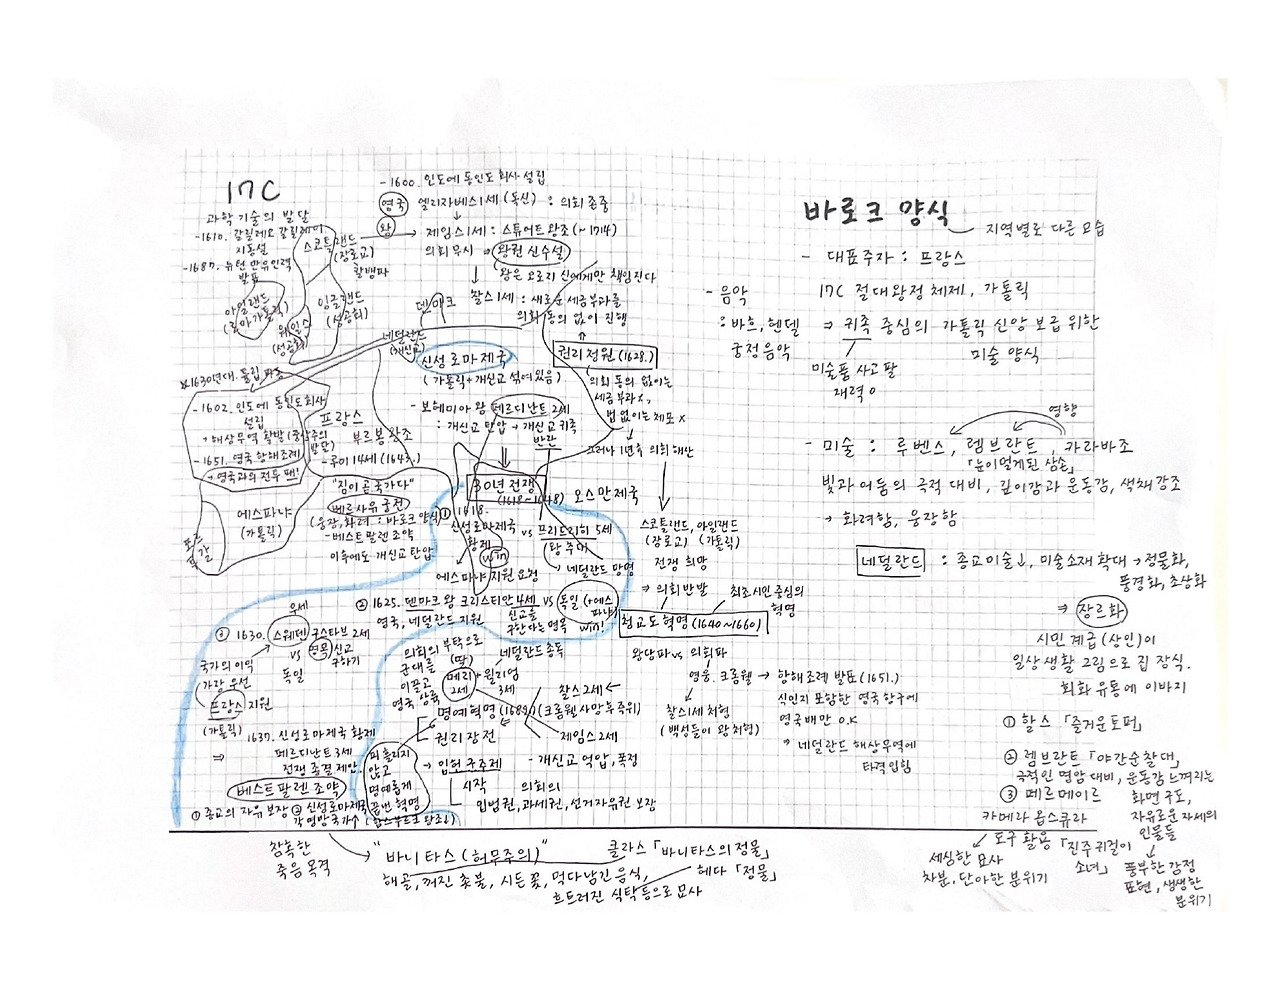 17C
과학 기술의 발달
-1610. 갈릴레오 갈릴레이
지동설
-1687. 뉴턴 만유인력
발표
스코틀랜드
(장로교)
칼뱅파
아일랜드
(로마 가톨릭)
잉글랜드
(성공회)
웨일스
(성공회)
-1600. 인도에 동인도 회사 설립
영국
왕
엘리자베스 1세 (독신) : 의회 존중
→ 제임스 1세 : 스튜어트 왕조 (~1714)
의회 무시 → 왕권 신수설
(왕은 오로지 신에게만 책임진다
찰스 1세 : 새로운 세금 부과를
의회 동의 없이 진행
권리 청원 (1628.)
의회 동의 없이는
세금 부과 x,
법 없이는 체포 x
그러나 1년 후 의회 해산
덴마크
네덜란드
(개신교)
신성 로마 제국
(가톨릭+개신교 섞여있음)
- 보헤미아 왕 페르디난트 2세
: 개신교 탄압 → 개신교 귀족
반란
-1602. 인도에 동인도회사
설립
→ 해상무역 활발
-1651. 영국 항해조례
→ 영국과의 전투 패!
프랑스
부르봉 왕조
-루이 14세 (1643.)
"짐이 곧 국가다"
베르사유 궁전
(웅장, 화려 : 바로크 양식)
-베스트팔렌 조약
이후에도 개신교 탄압
에스파냐
(가톨릭)
포르투갈
30년 전쟁
(1618~1648)
오스만 제국
① 1618.
신성로마제국
황제
vs 프리드리히 5세
win
에스파냐 지원 요청
네덜란드 망명
② 1625. 덴마크 왕 크리스티안 4세 vs 독일 (+에스파냐)
영국, 네덜란드 지원
신교를
구한다는 명목
win!
우세
③ 1630. 스웨덴 구스타브 2세
vs
명목 신교
구하기
독일
국가의 이익
가장 우선
프랑스 지원
(가톨릭)
1637. 신성로마제국 황제
⇒ 페르디난트 3세
전쟁 종결 제안.
베스트팔렌 조약
① 종교의 자유 보장 ② 신성로마제국
각 영방국가↑ (합스부르크 왕조↓)
스코틀랜드, 아일랜드
(장로교) (가톨릭)
전쟁 희망
→ 의회 반발
최초 시민 중심의
혁명
청교도 혁명 (1640~1660)
왕당파 vs 의회파
영웅. 크롬웰 → 항해조례 발표 (1651.)
식민지 포함한 영국 항구에
영국배만 O.K
⇒ 네덜란드 해상무역에
타격 입힘
찰스 1세 처형
(백성들이 왕 처형)
찰스 2세
(크롬웰 사망 후 즉위)
제임스 2세
- 개신교 억압, 폭정
의회의 부탁으로
군대를
이끌고
영국 상륙
(딸)
메리
2세
+ 윌리엄
3세
네덜란드 총독
명예혁명 (1689.)
권리 장전
→ 입헌 군주제
시작
의회의
입법권, 과세권, 선거자유권 보장
피 흘리지
않고
명예롭게
끝낸 혁명
참혹한
죽음 목격
"바니타스 (허무주의)"
해골, 꺼진 촛불, 시든 꽃, 먹다 남긴 음식,
흐트러진 식탁 등으로 묘사
클라스 「바니타스의 정물」
헤다 「정물」
바로크 양식
지역별로 다른 모습
- 대표주자 : 프랑스
17C 절대왕정 체제, 가톨릭
⇒ 귀족 중심의 가톨릭 신앙 보급 위한
미술 양식
미술품 사고 팔
재력 o
- 음악
: 바흐, 헨델
궁정음악
영향
- 미술 : 루벤스, 렘브란트, 카라바조
「눈이 멀게 된 삼손」
빛과 어둠의 극적 대비, 깊이감과 운동감, 색채 강조
→ 화려함, 웅장함
네덜란드 : 종교미술↓, 미술소재 확대 → 정물화,
풍경화, 초상화
⇒ 장르화
시민 계급 (상인)이
일상생활 그림으로 집 장식.
회화 유통에 이바지
① 할스 「즐거운 토퍼」
② 렘브란트 「야간순찰대」
극적인 명암 대비, 운동감 느껴지는
화면 구도,
자유로운 자세의
인물들
풍부한 감정
표현, 생생한
분위기
③ 페르메이르
카메라 옵스큐라
도구 활용 「진주 귀걸이
소녀」
세심한 묘사
차분, 단아한 분위기